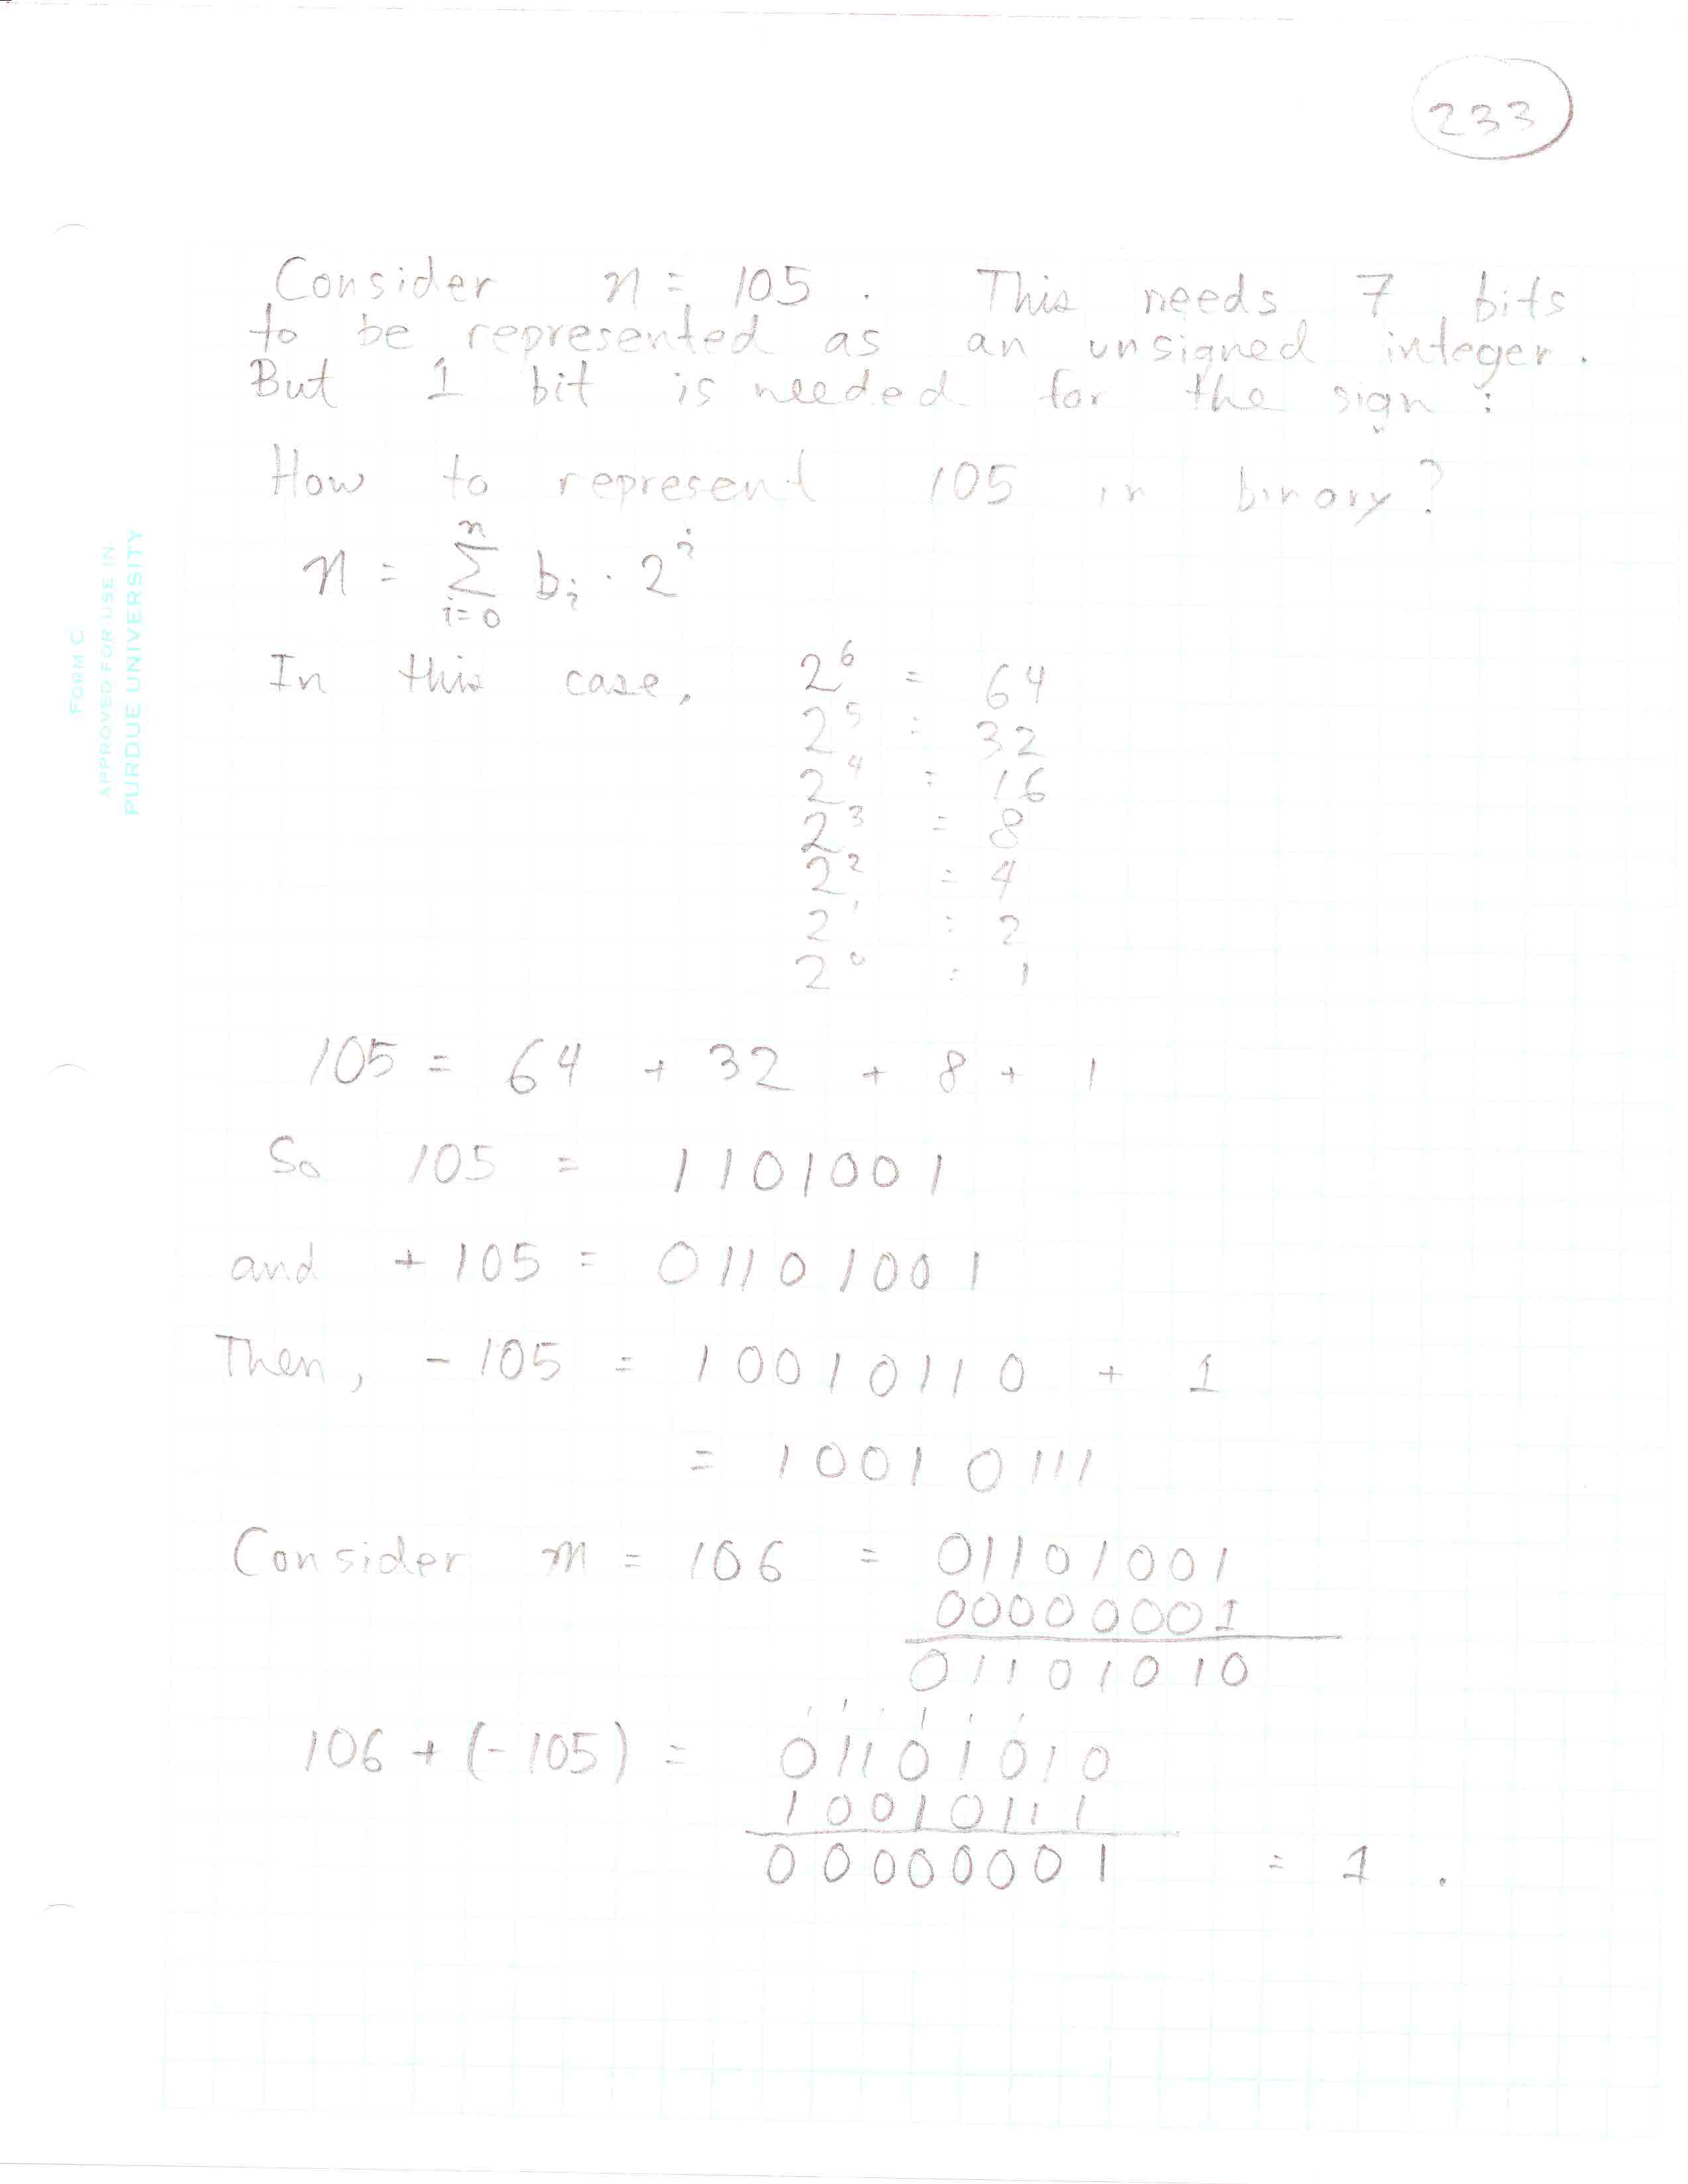 233
Consider n = 105. This needs 7 bits
to be represented as an unsigned integer.
But 1 bit is needed for the sign:
How to represent 105 in binary?
n = Σ_{i=0}^{n} b_i · 2^i
In this case, 2^6 = 64
2^5 = 32
2^4 = 16
2^3 = 8
2^2 = 4
2^1 = 2
2^0 = 1
105 = 64 + 32 + 8 + 1
So 105 = 1101001
and +105 = 01101001
Then, -105 = 10010110 + 1
= 10010111
Consider m = 106 = 01101001
00000001
01101010
1 1 1 1 1 1
106 + (-105) = 01101010
10010111
00000001 = 1.
FORM C
APPROVED FOR USE IN
PURDUE UNIVERSITY